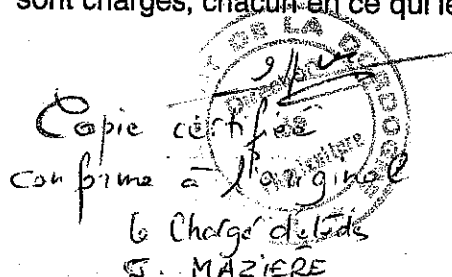 sont chargés, chacun en ce qui le
DE LA DORDOGNE
Copie certifiée
conforme à l'original
le Chargé d'études
G. MAZIERE